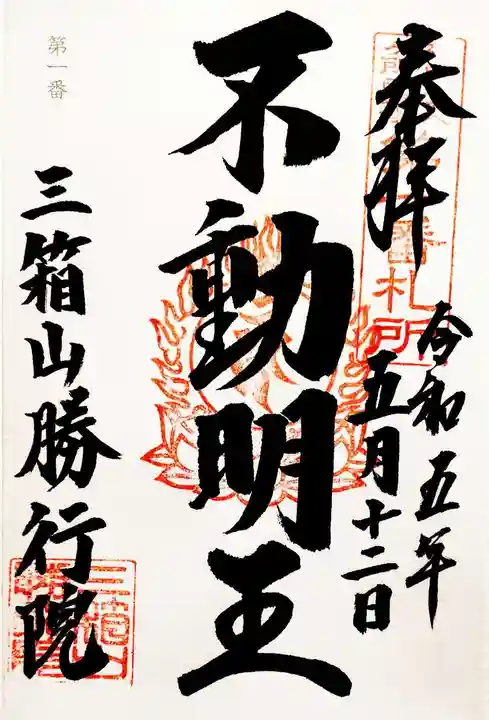 奉拝
令和五年
五月十二日
不動明王
第一番
三箱山勝行院
番札所